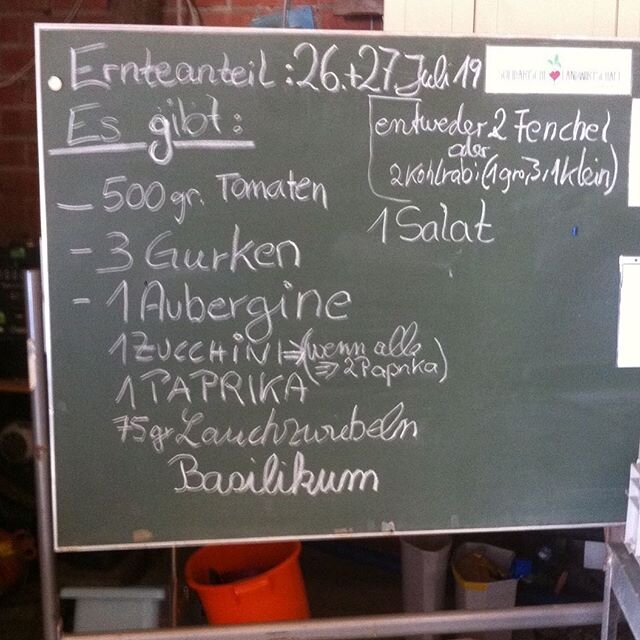 Ernteanteil: 26.+27 Juli 19
SOLIDARISCHE LANDWIRTSCHAFT
Es gibt:
- 500 gr. Tomaten
- 3 Gurken
- 1 Aubergine
1 ZUCCHINI ⇒ (wenn alle
⇒ 2 Paprika)
1 PAPRIKA
75 gr Lauchzwiebeln
Basilikum
entweder 2 Fenchel
oder
2 Kohlrabi (1 groß, 1 klein)
1 Salat